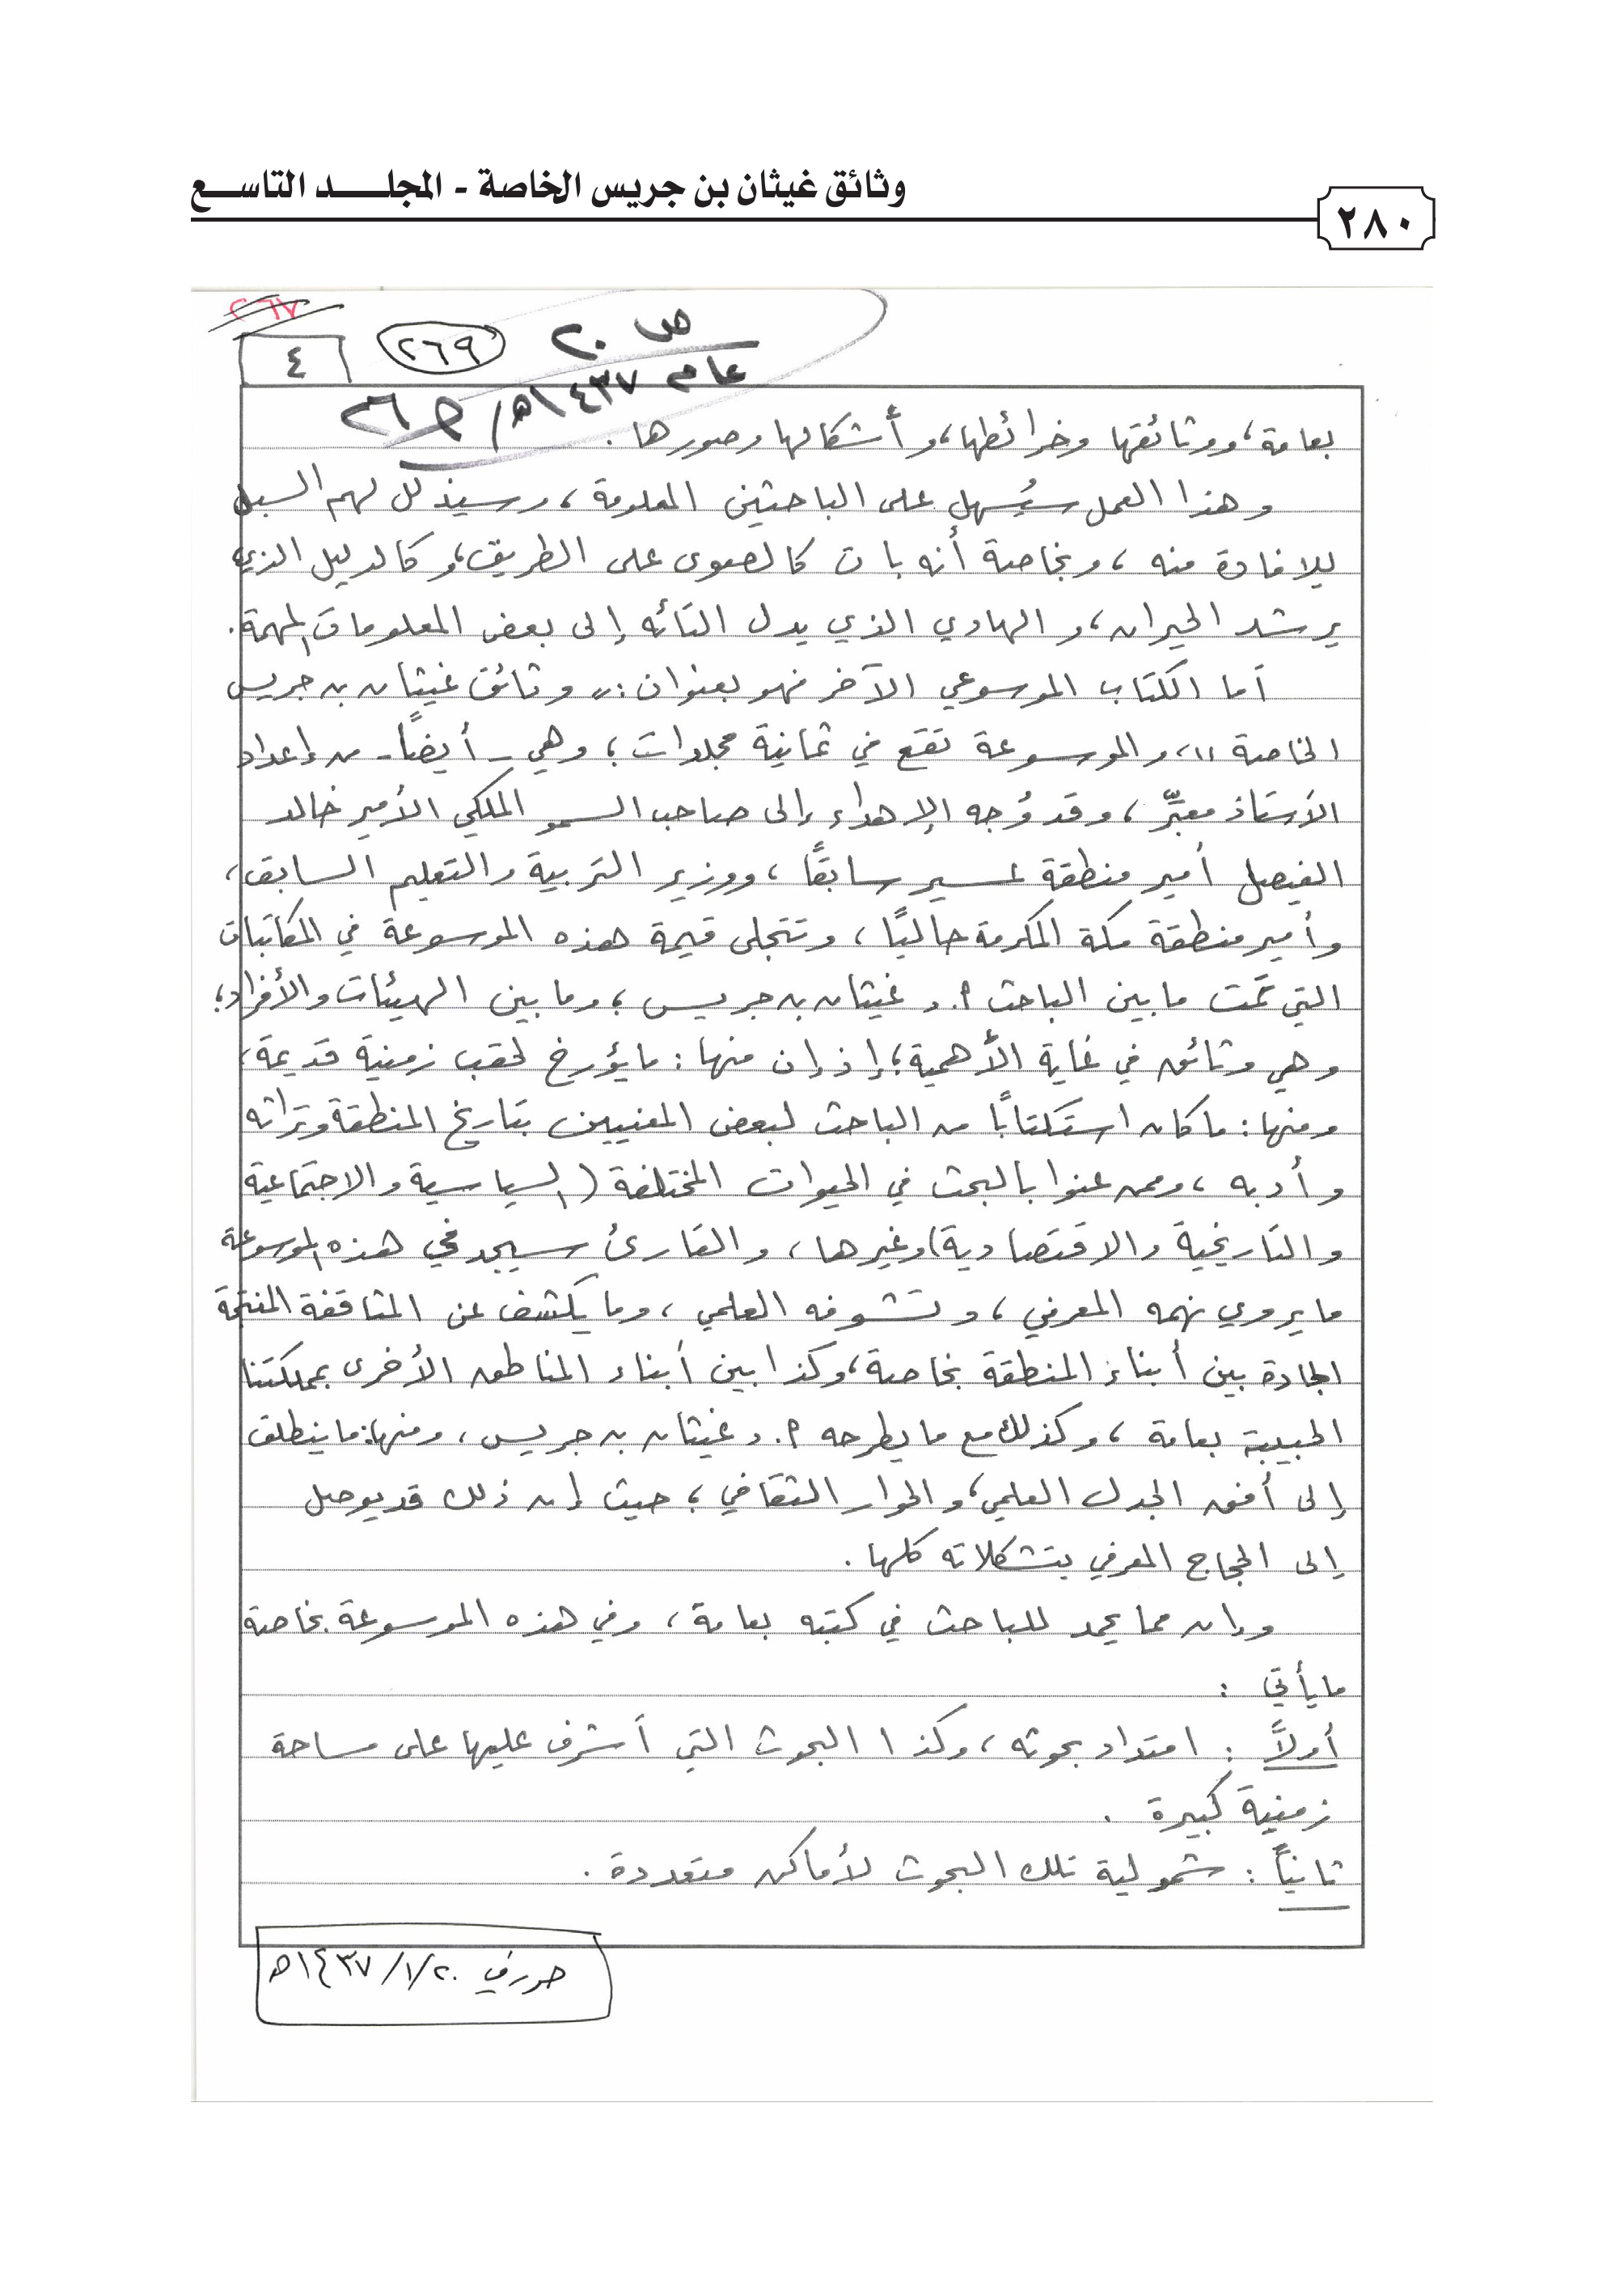 وثائق غيثان بن جريس الخاصة - المجلـــد التاســـع
٢٨٠
٢٦٧
ص ٢٠
٢٦٩
٤
عام ١٤٣٧هـ/
بعامة، ووثائقها وخرائطها، وأشكالها وصورها .
وهذا العمل سيُسهل على الباحثين المعلومة، وسيذلل لهم السبل
للإفادة منه، وبخاصة أنه بات كالصوى على الطريق، وكالدليل الذي
يرشد الحيران، والهادي الذي يدل التائه إلى بعض المعلومات المهمة.
أما الكتاب الموسوعي الآخر فهو بعنوان: "وثائق غيثان بن جريس
الخاصة"، والموسوعة تقع في ثمانية مجلدات؛ وهي - أيضاً - من إعداد
الأستاذ معبِّر، وقد وُجه الإهداء إلى صاحب السمو الملكي الأمير خالد
الفيصل أمير منطقة عسير سابقًا، ووزير التربية والتعليم السابق،
وأمير منطقة مكة المكرمة حاليًا، وتتجلى قيمة هذه الموسوعة في المكاتبات
التي تمت ما بين الباحث أ. د غيثان بن جريس؛ وما بين الهيئات والأفراد؛
وهي وثائق في غاية الأهمية؛ إذ إن منها: ما يؤرخ لحقب زمنية قديمة،
ومنها: ما كان استكتابًا من الباحث لبعض المعنيين بتاريخ المنطقة وتراثه
وأدبه، وممن عنوا بالبحث في الحيوات المختلفة (السياسية والاجتماعية
والتاريخية والاقتصادية) وغيرها، والقارئ سيجد في هذه الموسوعة
ما يروي نهمه المعرفي، وتشوفه العلمي، وما يكشف عن المثاقفة المنتجة
الجادة بين أبناء المنطقة بخاصة، وكذا بين أبناء المناطق الأخرى بمملكتنا
الحبيبة بعامة، وكذلك مع ما يطرحه أ. د غيثان بن جريس، ومنها: ما ينطلق
إلى أفق الجدل العلمي، والحوار الثقافي؛ حيث إن ذلك قد يوصل
إلى الحجاج المعرفي بتشكلاته كلها .
وإن مما يحمد للباحث في كتبه بعامة، وفي هذه الموسوعة بخاصة
ما يأتي :
أولاً : امتداد بحوثه، وكذا البحوث التي أشرف عليها على مساحة
زمنية كبيرة .
ثانياً : شمولية تلك البحوث لأماكن متعددة .
حرر في ١٤٣٧/١/٢٠هـ